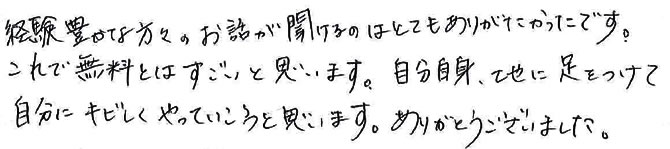 経験豊かな方々のお話が聞けるのはとてもありがたかったです。
これで無料とはすごいと思います。自分自身、地に足をつけて
自分にキビしくやっていこうと思います。ありがとうございました。